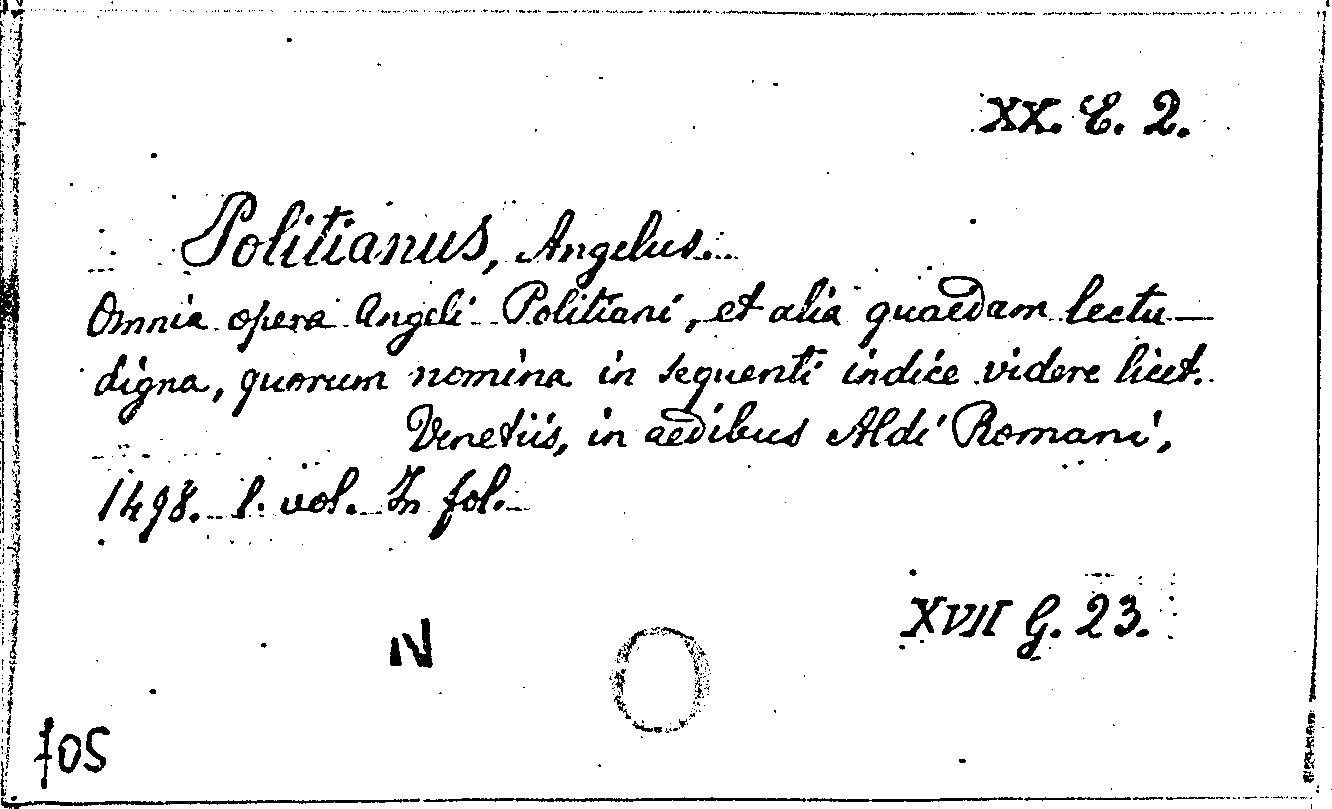 XX. E. 2.
Politianus, Angelus.
Omnia opera Angeli Politiani, et alia quaedam lectu
digna, quorum nomina in sequenti indice videre licet.
Venetiis, in aedibus Aldi Romani,
1498. 1. vol. In fol.
XVII G. 23.
IV
fos